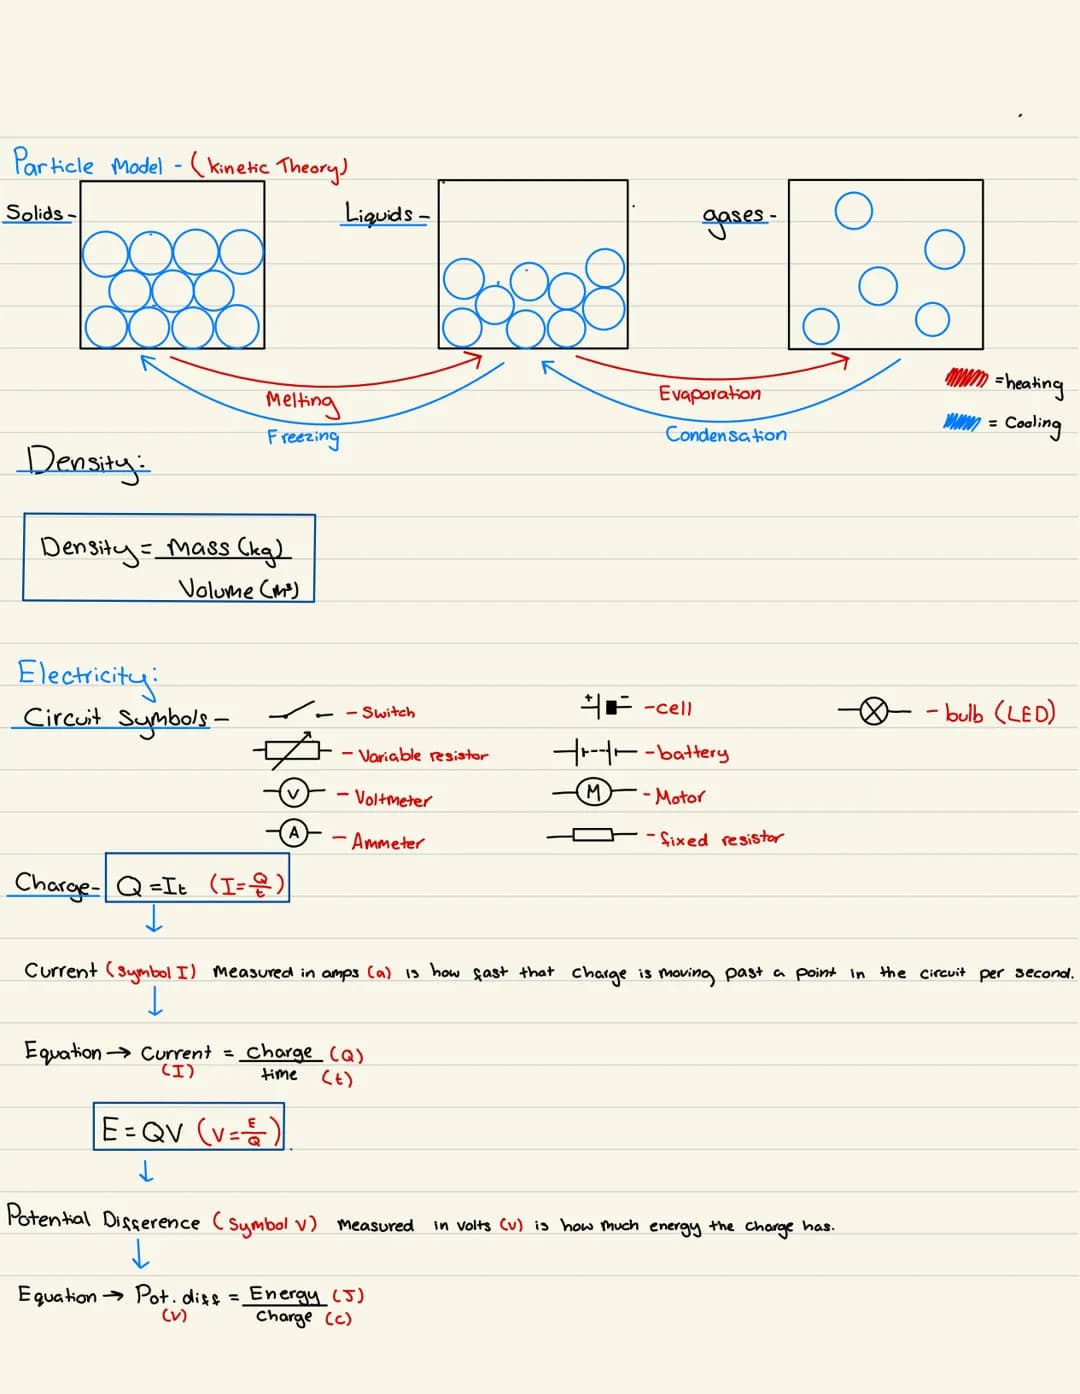 Particle Model - (kinetic Theory)
Solids -
Liquids -
gases -
Melting
Freezing
Evaporation
Condensation
=heating
= Cooling
Density:
Density = Mass (kg)
Volume (m³)
Electricity:
Circuit Symbols -
- Switch
+ -
-cell
- bulb (LED)
- Variable resistor
-battery
V
- Voltmeter
M
- Motor
A
- Ammeter
- fixed resistor
Charge- Q =It (I=Q/t)
Current (Symbol I) Measured in amps (a) is how fast that charge is moving past a point in the circuit per second.
Equation → Current = charge (Q)
(I) time (t)
E = QV (V=E/Q)
Potential Difference (Symbol V) Measured in volts (v) is how much energy the charge has.
Equation → Pot. diff = Energy (J)
(V) Charge (c)